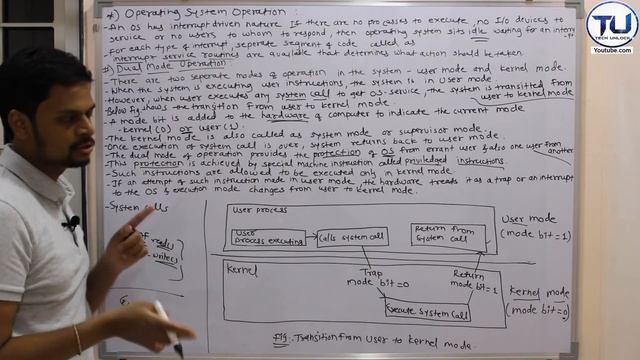 *) Operating System Operation :
- An OS has interrupt driven nature. If there are no processes to execute, no I/O devices to
service or no users to whom to respond, then operating system sits idle waiting for an interr
-pt
- For each type of interrupt, seperate segment of code called as
interrupt service routines are available that determines what action should be taken
Dual Mode Operation:
- There are two seperate modes of operation in the system - user mode and kernel mode.
- When the system is executing user instructions, the system is in user mode.
- However, when user executes any system call to get OS-service, the system is transitted from
user to kernel mode
Below fig shows the transition from user to kernel mode.
- A mode bit is added to the hardware of computer to indicate the current mode
- kernel (0) or user (1).
- The kernel mode is also called as system mode or supervisor mode.
- Once execution of system call is over, system returns back to user mode.
- The dual mode of operation provides the protection of OS from errant user & also one user from
another
- This protection is achieved by special machine instruction called priviledged instructions.
- Such instructions are allowed to be executed only in kernel mode.
- If an attempt of such instruction made in user mode, the hardware treats it as a trap or an interrupt
to the OS & execution mode changes from user to kernel mode.
- System calls
read
write
User process
User process executing
Calls system call
Return from system call
User mode
(mode bit = 1)
Trap
mode bit = 0
Return
mode bit = 1
Kernel
Execute System call
Kernel mode
(mode bit = 0)
Fig: Transition from User to Kernel mode.
TU
TECH UNLOCK
Youtube.com